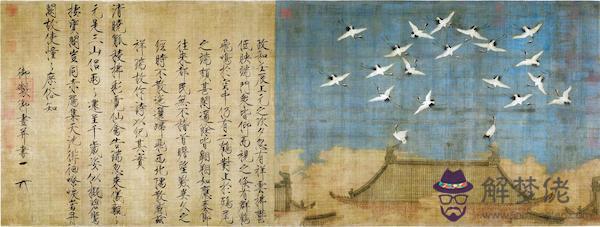 政和壬辰上元之次夕忽有祥雲拂鬱
低映端門眾皆仰而視之倏有群鶴
飛鳴於空中仍有二鶴對止於鴟尾
之端頗甚閑適餘皆翱翔如應奏節
往來都民無不稽首瞻望歎異久之
經時不散迤邐歸飛西北隅散感茲
祥瑞故作詩以紀其實
清曉觚稜拂彩霓仙禽告瑞忽來儀飄飄
元是三山侶兩兩還呈千歲姿似擬碧鸞
棲寶閣豈同赤雁集天池徘徊嘹唳當丹
闕故使憧憧庶俗知
御製御畫並書
解梦佬